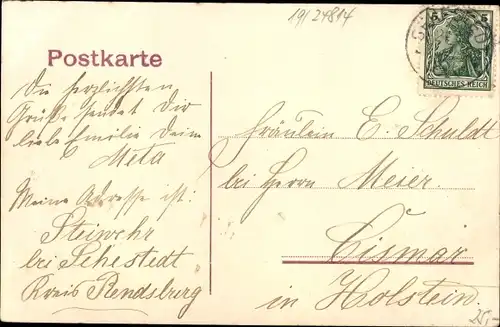 19/24814
5
DEUTSCHES REICH
Postkarte
Die herzlichsten
Grüße sendet Dir
liebe Emilie Deine
Meta
Meine Adresse ist:
Steinwehr
bei Sehestedt
Kreis Rendsburg
Fräulein E. Schuldt
bei Herrn Meier.
Cismar
in Holstein.
25,-